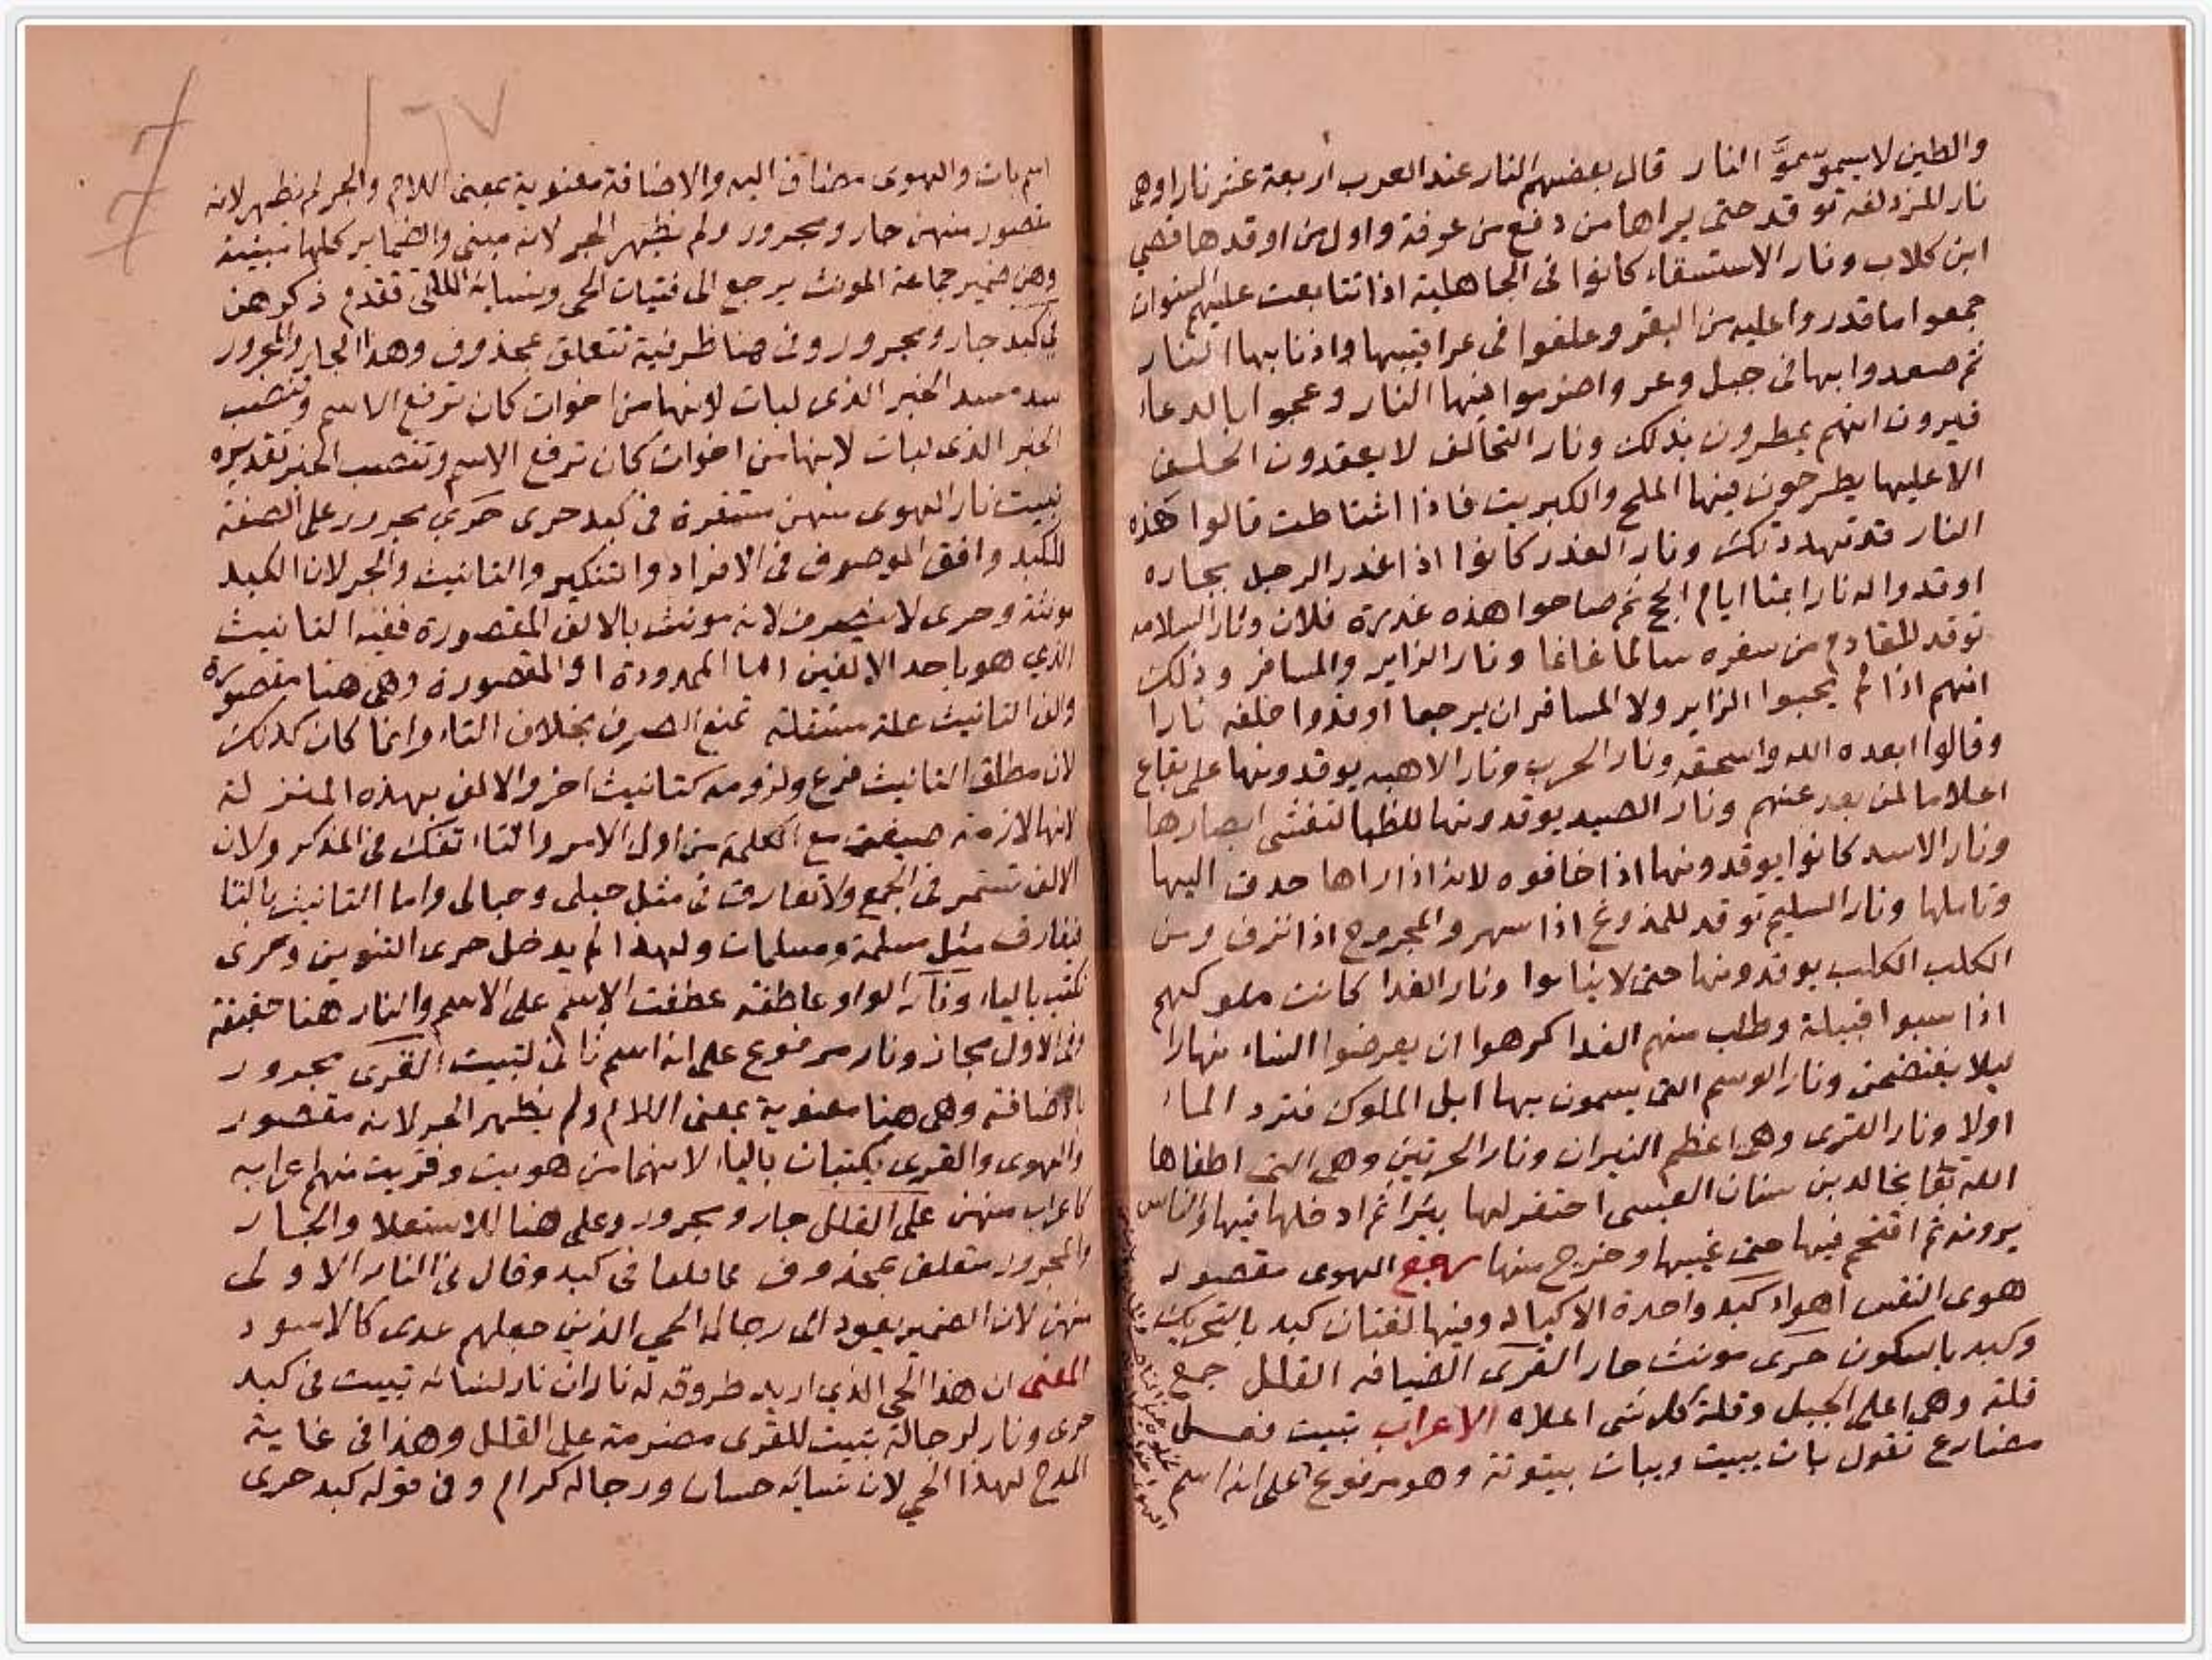 والطين لا يسمو سموَّ النار قال بعضهم النار عند العرب اربعة عشر نارا وهى
نار المزدلفه توقد حتى يراها من دفع من عرفة واول من اوقدها قصي
ابن كلاب ونار الاستسقاء كانوا فى الجاهلية اذا تتابعت عليهم السنوات
جمعوا ما قدروا عليه من البقر وعلقوا فى عراقيبها واذنابها النار
ثم صعدوا بها فى جبل وعر واضرموا فيها النار وعجوا بالدعاء
فيرون انهم يمطرون بذلك ونار التحالف لا يعقدون الحلف
الا عليها يطرحون فيها الملح والكبريت فاذا اشتاطت قالوا هذه
النار قد تهددتك ونار الغدر كانوا اذا غدر الرجل بجاره
اوقدوا له نارا بمنا ايام الحج ثم صاحوا هذه غدرة فلان ونار السلامه
توقد للقادم من سفره سالما غانما ونار الزاير والمسافر وذلك
انهم اذا لم يحبوا الزاير ولا المسافر ان يرجعا اوقدوا خلفه نارا
وقالوا ابعده الله واسحقه ونار الحرب ونار الاهبه يوقدونها على بقاع
اعلاما لمن بعد عنهم ونار الصيد يوقدونها للظبا لتغشى ابصارها
ونار الاسد كانوا يوقدونها اذا خافوه لانه اذا راها حدق اليها
وتاملها ونار السليم توقد للملدوغ اذا سهر والمجروح اذا نزف ومن
الكلب الكلب يوقدونها حتى لا يناموا ونار الفدا كانت ملوكهم
اذا سبوا قبيلة وطلب منهم الفدا كرهوا ان يعرضوا النساء نهارا
ليلا يفتضحن ونار الوسم التى يسمون بها ابل الملوك فترد الماء
اولا ونار القرى وهى اعظم النيران ونار الحرتين وهى التى اطفاها
الله تعا بخالد بن سنان العبسى احتفر لها بئرا ثم ادخلها فيها والناس
يرونه ثم اقتحم فيها حتى غيبها وخرج منها رجع الهوى مقصور
هوى النفس اهواء كبد واحدة الاكباد وفيها لغتان كبد بالتحريك
وكبد بالسكون حرى مونث حار القرى الضيافه القلل جمع
قلة وهى اعلى الجبل وقلة كل شى اعلاه الاعراب تبيت فعل
مضارع تقول بات يبيت ويبات بيتوتة وهو مرفوع على انه اسم
١٢٧
اسم بات والهوى مضاف اليه والاضافة معنوية بمعنى اللام والجر لم يظهر لانه
مقصور منهن جار ومجرور ولم يظهر الجر لانه مبنى والضماير كلها مبنية
وهن ضمير جماعة المونث يرجع الى فتيات الحى ونسايه اللاتى تقدم ذكرهن
فى كبد جار ومجرور وفى هنا ظرفية تتعلق بمحذوف وهذا الجار والمجرور
سد مسد الخبر الذى لبات لانها من اخوات كان ترفع الاسم وتنصب
الخبر الذى لبات لانها من اخوات كان ترفع الاسم وتنصب الخبر تقديره
تبيت نار الهوى منهن مستقرة فى كبد حرى حرى مجرور على الصفة
للكبد وافق الموصوف فى الافراد والتنكير والتانيث والجر لان الكبد
مونثة وحرى لا ينصرف لانه مونث بالالف المقصورة ففيه التانيث
الذي هو باحد الالفين اما الممدودة او المقصورة وهى هنا مقصورة
والف التانيث علة مستقلة تمنع الصرف بخلاف التاء وانما كان كذلك
لان مطلق التانيث فرع ولزومه كتانيث اخر والالف بهذه المنزلة
لانها لازمة صيغت مع الكلمة من اول الامر والتاء تفك فى المذكر ولان
الالف تستمر فى الجمع ولا تفارق فى مثل حبلى وحبالى واما التانيث بالتا
فيفارق مثل مسلمة ومسلمات ولهذا لم يدخل حرى التنوين وحرى
تكتب بالياء ونار الواو عاطفه عطفت الاسم على الاسم والنار هنا حقيقة
وفى الاول مجاز ونار مرفوع على انه اسم ثانى لتبيت القرى مجرور
بالاضافة وهى هنا معنوية بمعنى اللام ولم يظهر الجر لانه مقصور
والهوى والقرى يكتبان بالياء لانهما من هويت وقريت منهم اعرابه
كاعراب منهن على القلل جار ومجرور وعلى هنا للاستعلا والجار
والمجرور متعلق بمحذوف كما قلنا فى كبد وقال فى النار الاولى
منهن لان الضمير يعود الى رجال الحي الذين جعلهم عدى كالاسود
المعنى ان هذا الحي الذي اريد طروقه له ناران نار لنسائه تبيت فى كبد
حرى ونار لرجاله تبيت للقرى مضرمة على القلل وهذا فى غاية
المدح لهذا الحي لان نسايه حسان ورجاله كرام وفى قوله كبد حرى